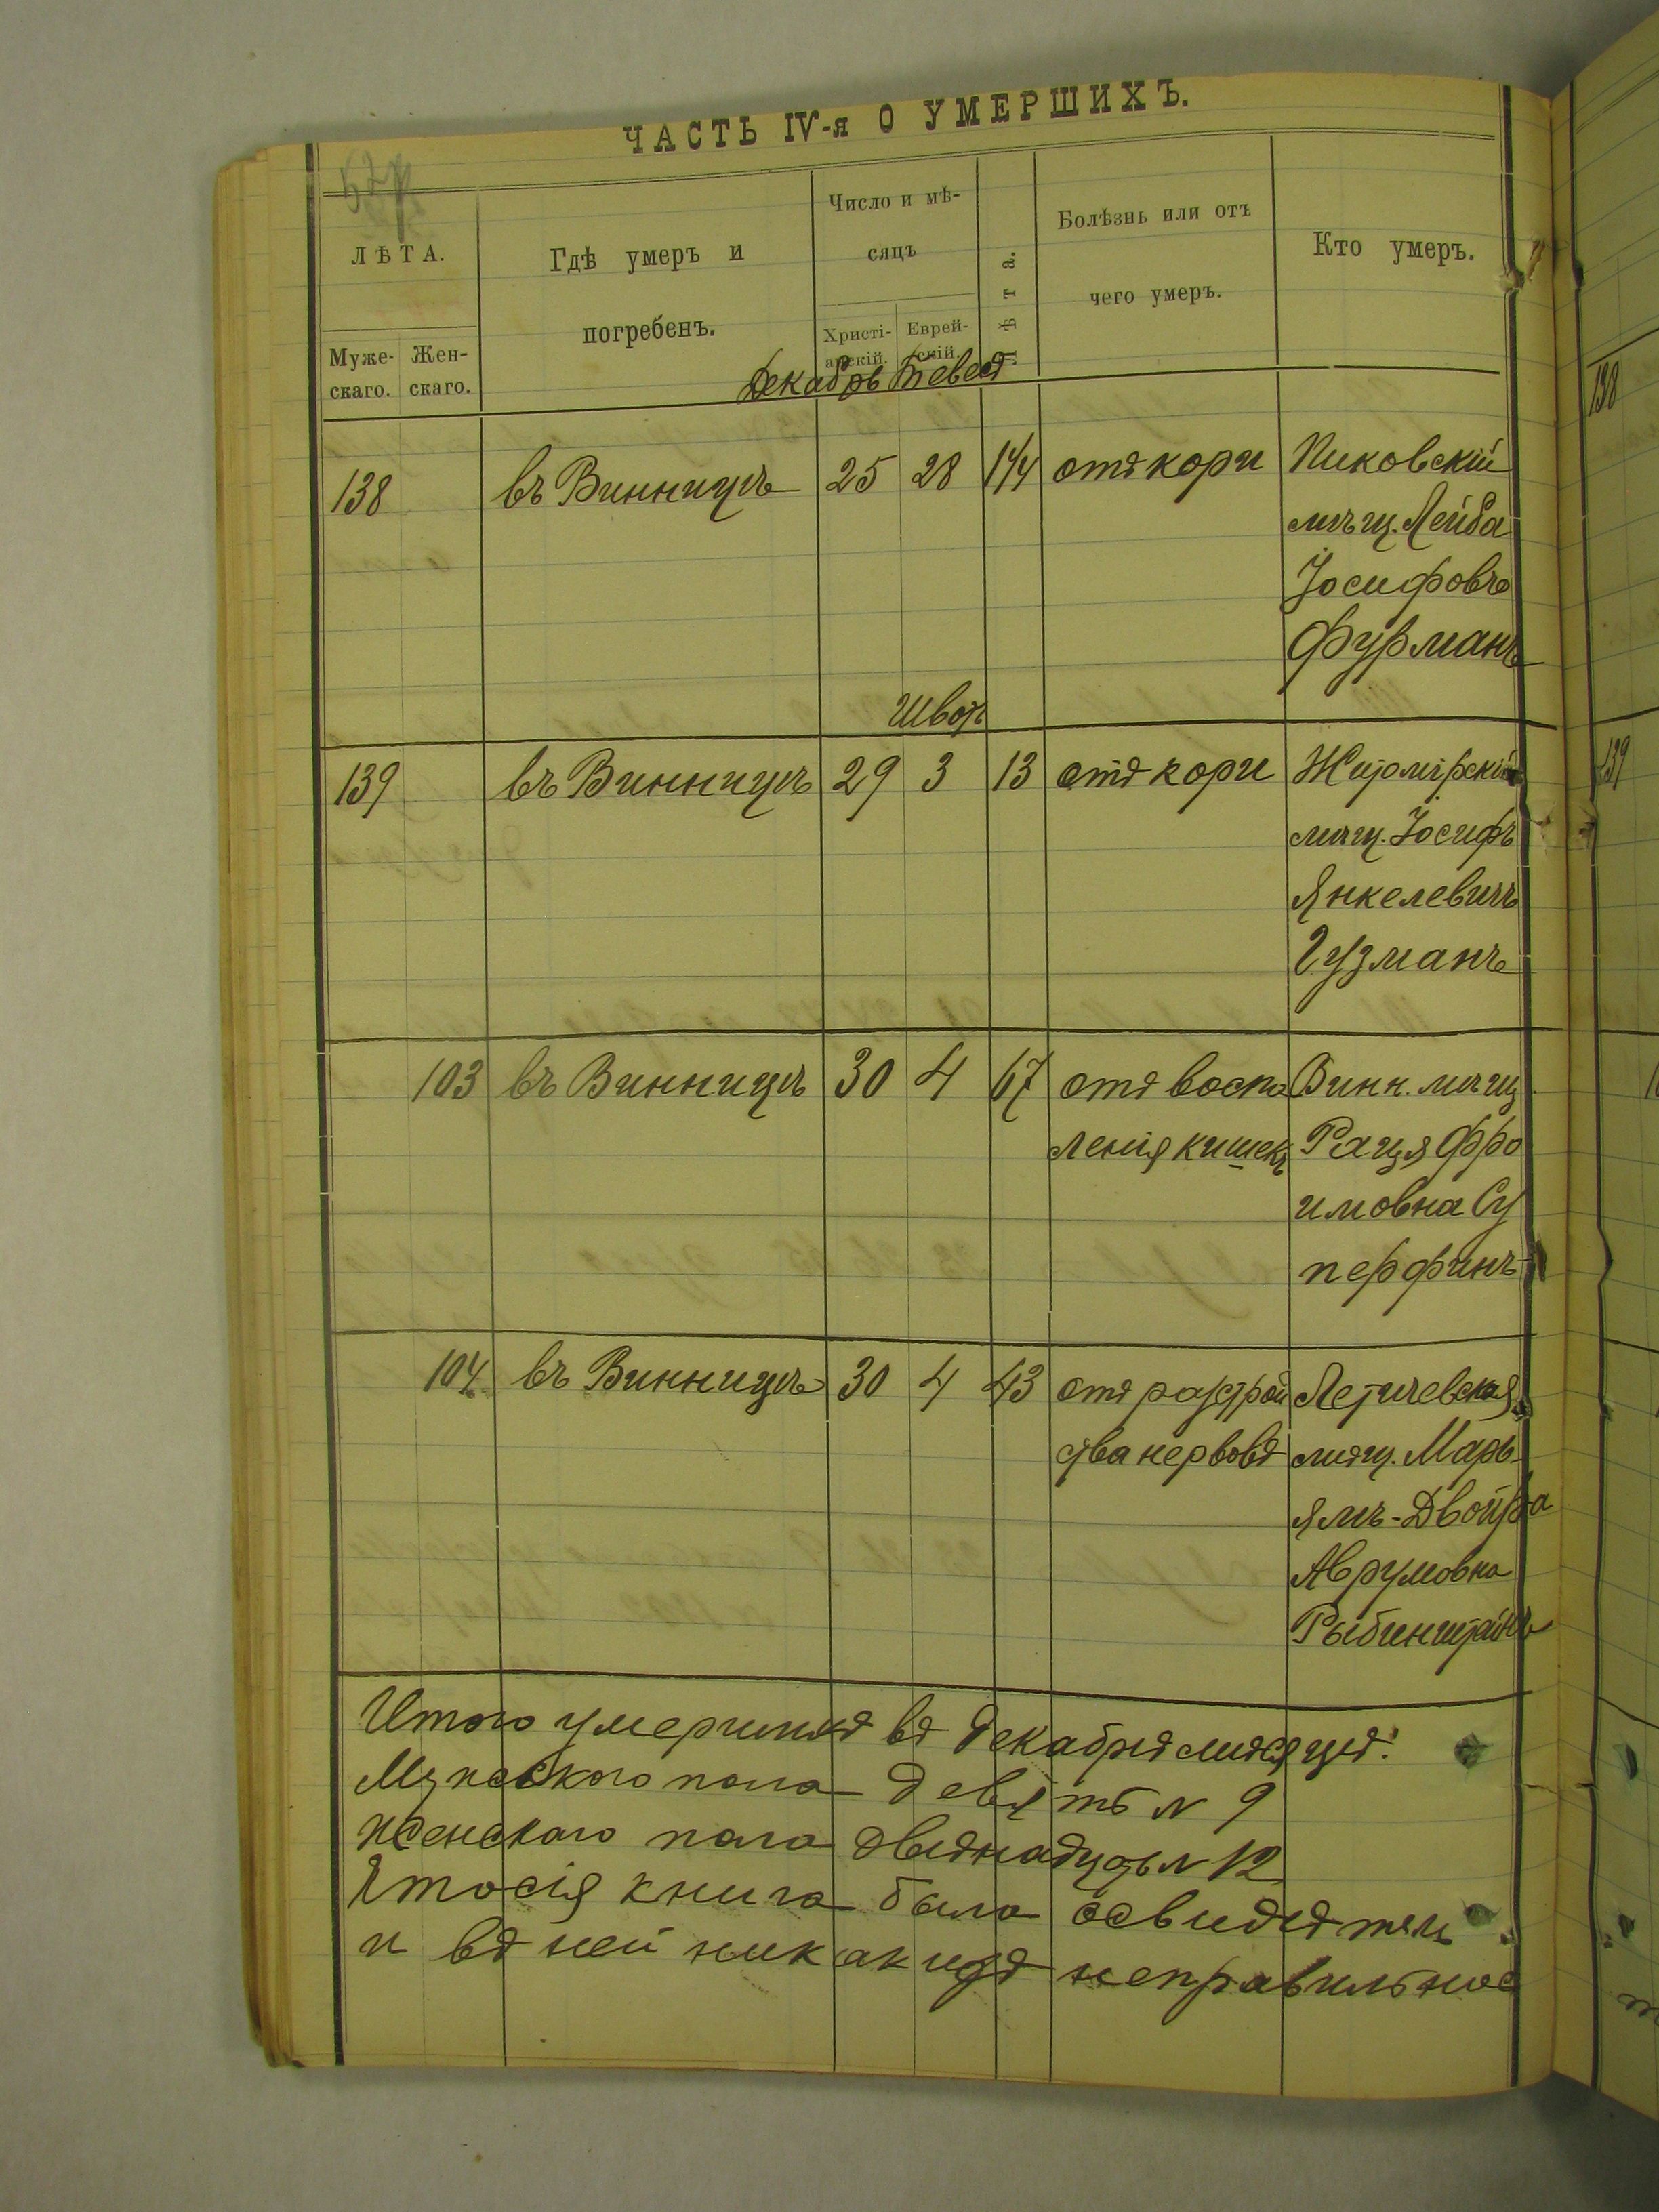 ЧАСТЬ IV-я О УМЕРШИХЪ.
ЛѢТА.
Муже-
скаго.
Жен-
скаго.
Гдѣ умеръ и
погребенъ.
Число и мѣ-
сяцъ
Христі-
анскій.
Еврей-
скій.
Лѣта.
Болѣзнь или отъ
чего умеръ.
Кто умеръ.
Декабрь Тевес
138 въ Винницѣ 25 28 1¼ отъ кори Пиковскій
мѣщ. Лейба
Іосифовъ
Фурманъ
Шват
139 въ Винницѣ 29 3 13 отъ кори Житомірскій
мѣщ. Іосифъ
Янкелевичъ
Гузманъ
103 въ Винницѣ 30 4 67 отъ воспа Винн. мѣщ
ленія кишекъ Рація Фро
имовна Су
перфинъ
104 въ Винницѣ 30 4 43 отъ разстрой Летичевская
ства нервовъ мѣщ. Марь
ямъ-Двойра
Аврумовна
Рыбинштейнъ
Итого умершихъ въ декабрѣ мѣсяцѣ:
Мужскаго пола девять N 9
женскаго пола двѣнадцать N 12
Что сія книга была освидѣтель
и въ ней никакихъ неправильнос
138
139